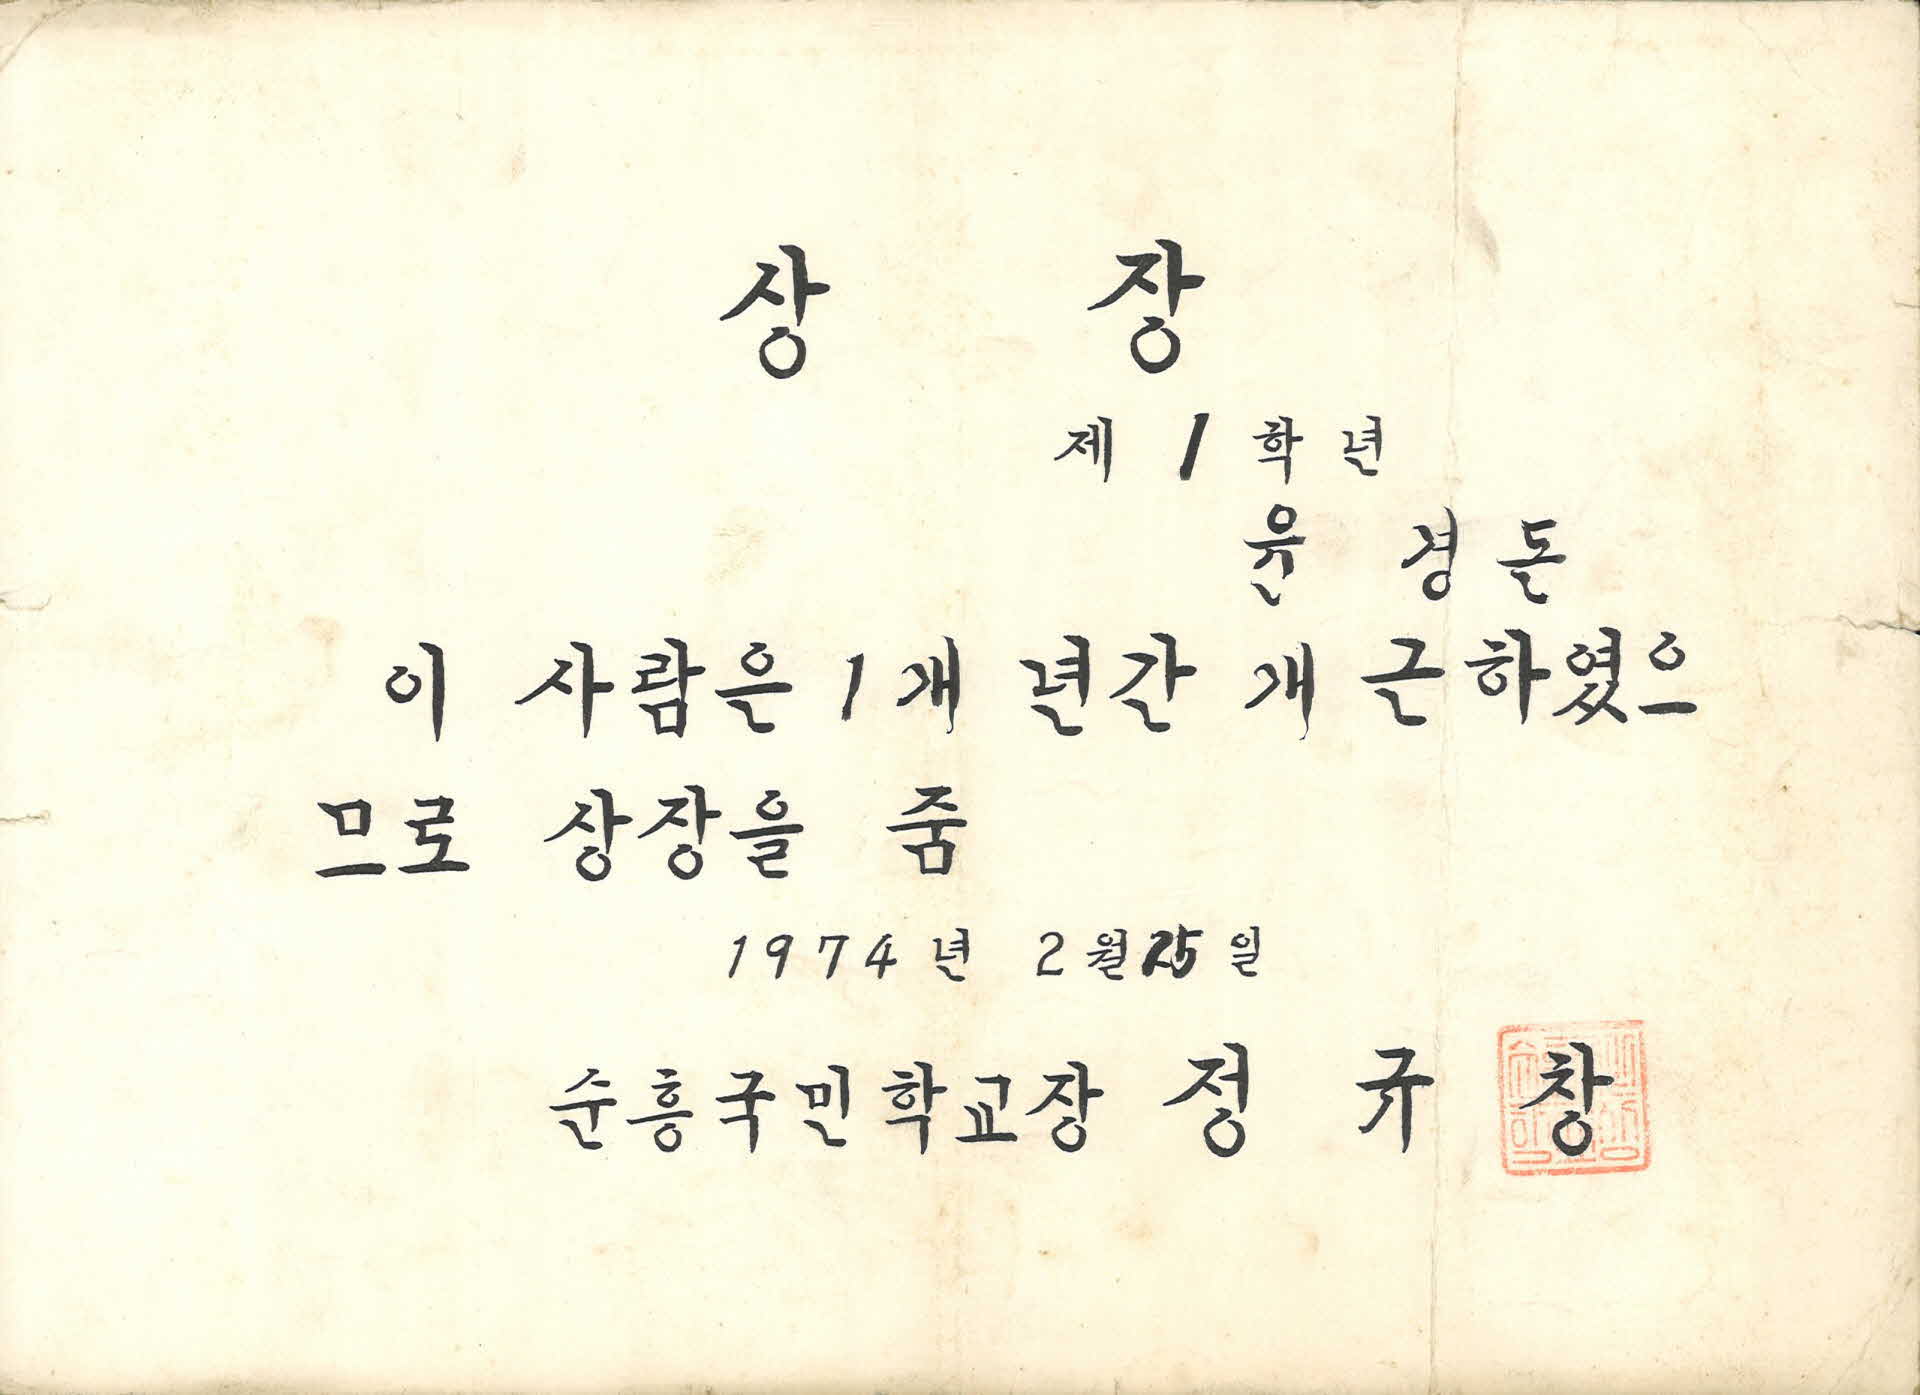 상 장
제 1 학 년
윤 경 돈
이 사람은 1개 년간 개근하였으
므로 상장을 줌
1974년 2월 25일
순흥국민학교장 정 규 창